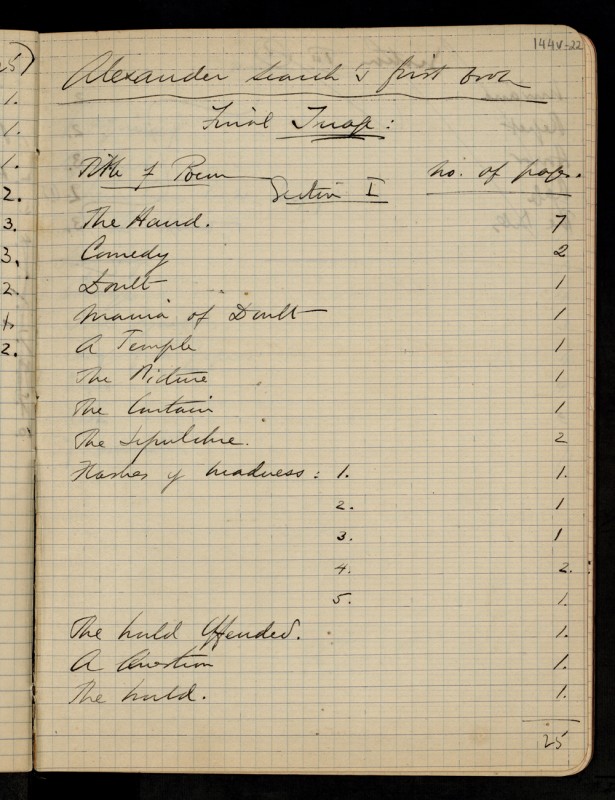 144V-22
Alexander Search's first book
Final Image:
Title of Poem
no. of pages.
Section I
The Hand. 7
Comedy 2
Doubt 1
Mania of Doubt 1
A Temple 1
The Picture 1
The Curtain 1
The Sepulchre. 2
Flashes of Madness: 1. 1.
2. 1
3. 1
4. 2.
5. 1.
The World Offended. 1.
A Question 1.
The World. 1.
25
5)
1.
1.
1.
2.
3.
3.
2.
1.
2.